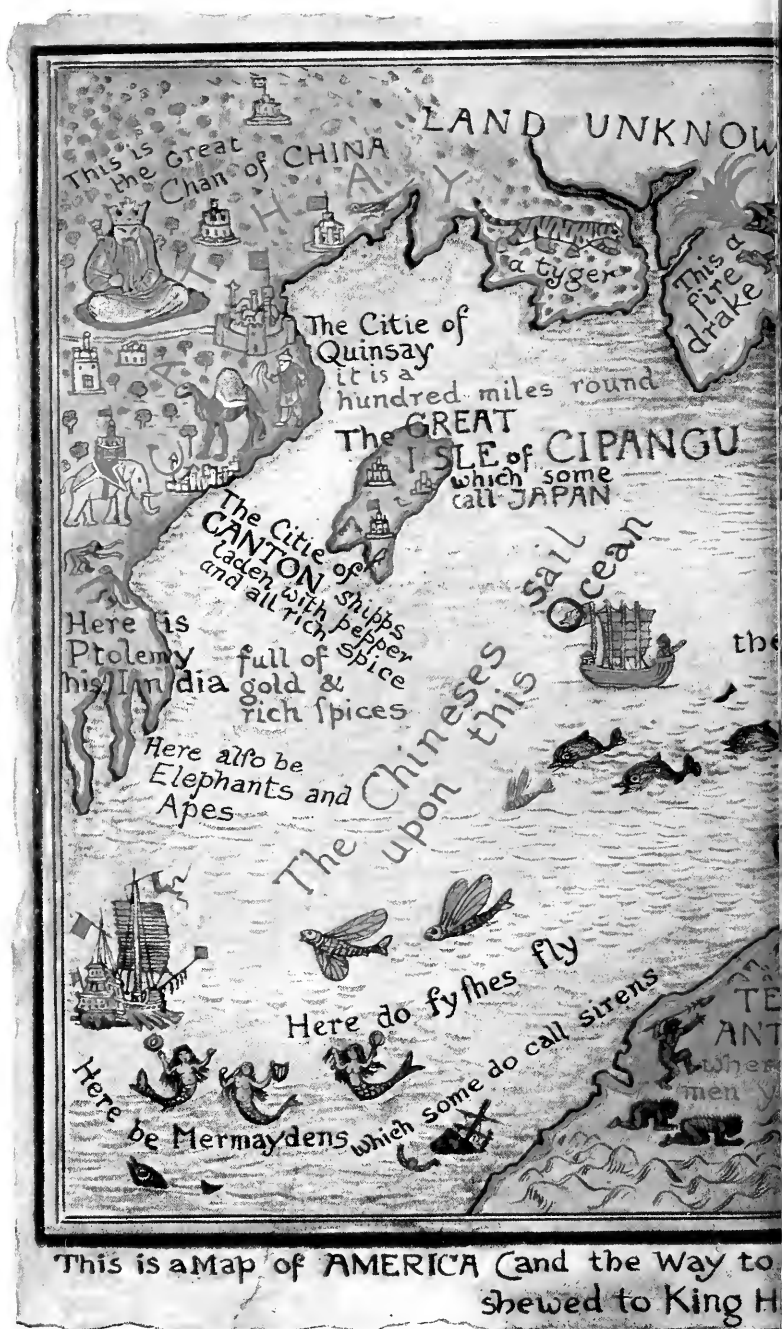 LAND UNKNOW
This is
the Great
Chan of CHINA
CATHAY
a tyger
This a
fire
drake
The Citie of
Quinsay
it is a
hundred miles round
The GREAT
ISLE of CIPANGU
which some
call JAPAN
The Citie of
CANTON Shipps
laden with pepper
and all rich Spice
The Chineses Sail
upon this Ocean
the
Here is
Ptolemy
his India
full of
gold &
rich ſpices
Here alſo be
Elephants and
Apes
Here do fyſhes fly
Here be Mermaydens which some do call sirens
TE
ANT
wher
men y
This is a Map of AMERICA (and the Way to
shewed to King H